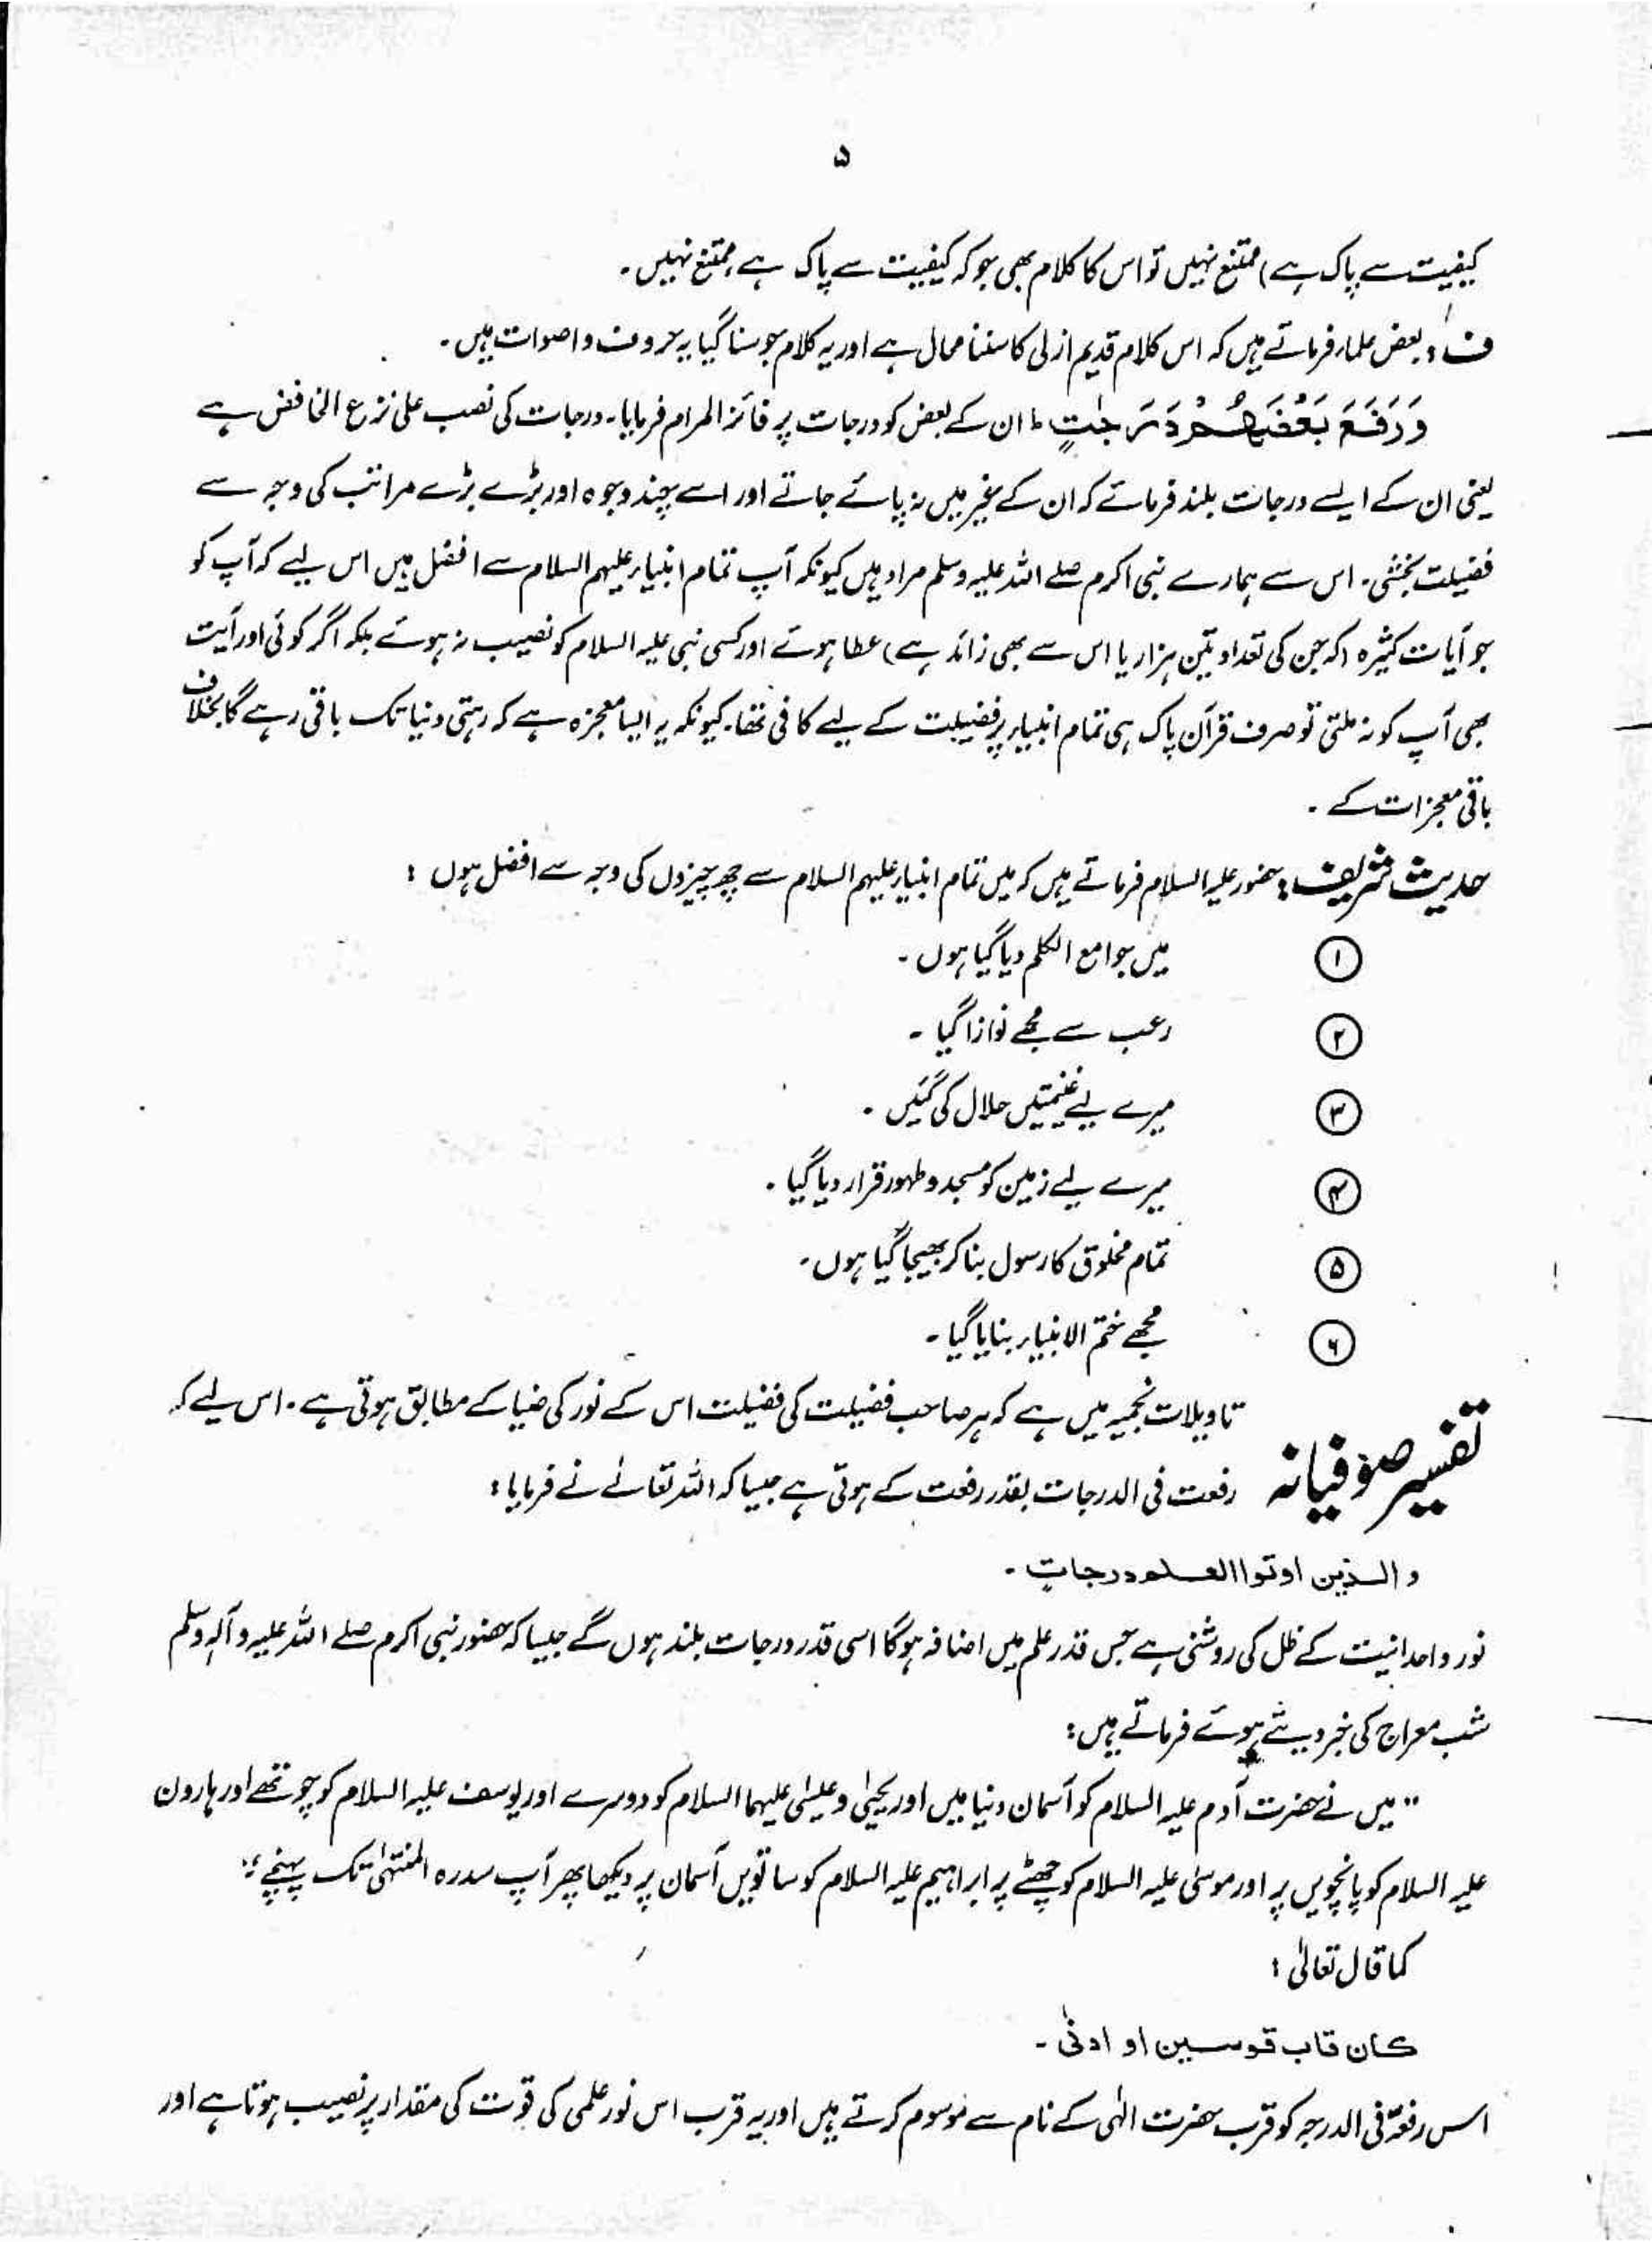 ۵
کیفیت سے پاک ہے) ممتنع نہیں تو اس کا کلام بھی جو کہ کیفیت سے پاک ہے ممتنع نہیں۔
ف: بعض علماء فرماتے ہیں کہ اس کلام قدیم ازلی کا سننا محال ہے اور یہ کلام جو سنا گیا یہ حروف و اصوات ہیں۔
وَرَفَعَ بَعْضَهُمْ دَرَجٰتٍ ط ان کے بعض کو درجات پر فائز المرام فرمایا۔ درجات کی نصب علیٰ نزع الخافض ہے
یعنی ان کے ایسے درجات بلند فرمائے کہ ان کے غیر میں نہ پائے جاتے اور اسے چند وجوہ اور بڑے بڑے مراتب کی وجہ سے
فضیلت بخشی۔ اس سے ہمارے نبی اکرم صلے اللہ علیہ وسلم مراد ہیں کیونکہ آپ تمام انبیاء علیہم السلام سے افضل ہیں اس لیے کہ آپ کو
جو آیات کثیرہ (کہ جن کی تعداد تین ہزار یا اس سے بھی زائد ہے) عطا ہوئے اور کسی نبی علیہ السلام کو نصیب نہ ہوئے بلکہ اگر کوئی اور آیت
بھی آپ کو نہ ملتی تو صرف قرآن پاک ہی تمام انبیاء پر فضیلت کے لیے کافی تھا۔ کیونکہ یہ ایسا معجزہ ہے کہ رہتی دنیا تک باقی رہے گا بخلاف
باقی معجزات کے۔
حدیث شریف: حضور علیہ السلام فرماتے ہیں کہ میں تمام انبیاء علیہم السلام سے چھ چیزوں کی وجہ سے افضل ہوں :
① میں جوامع الکلم دیا گیا ہوں۔
② رعب سے مجھے نوازا گیا۔
③ میرے لیے غنیمتیں حلال کی گئیں۔
④ میرے لیے زمین کو مسجد و طہور قرار دیا گیا۔
⑤ تمام مخلوق کا رسول بنا کر بھیجا گیا ہوں۔
⑥ مجھے ختم الانبیاء بنایا گیا۔
تفسیر صوفیانہ تاویلات نجمیہ میں ہے کہ ہر صاحب فضیلت کی فضیلت اس کے نور کی ضیا کے مطابق ہوتی ہے۔ اس لیے کہ
رفعت فی الدرجات بقدر رفعت کے ہوتی ہے جیسا کہ اللہ تعالےٰ نے فرمایا :
والذین اوتوا العلم درجات۔
نور واحدانیت کے ظل کی روشنی ہے جس قدر علم میں اضافہ ہوگا اسی قدر درجات بلند ہوں گے جیسا کہ حضور نبی اکرم صلے اللہ علیہ وآلہ وسلم
شب معراج کی خبر دیتے ہوئے فرماتے ہیں:
" میں نے حضرت آدم علیہ السلام کو آسمان دنیا میں اور یحییٰ و عیسیٰ علیہما السلام کو دوسرے اور یوسف علیہ السلام کو چوتھے اور ہارون
علیہ السلام کو پانچویں پر اور موسیٰ علیہ السلام کو چھٹے پر ابراہیم علیہ السلام کو ساتویں آسمان پر دیکھا پھر آپ سدرہ المنتہیٰ تک پہنچے۔"
کما قال تعالیٰ :
کان قاب قوسین او ادنیٰ۔
اس رفعۃ فی الدرجہ کو قرب حضرت الٰہی کے نام سے موسوم کرتے ہیں اور یہ قرب اس نور علمی کی قوت کی مقدار پر نصیب ہوتا ہے اور